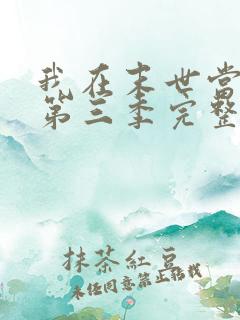 我在末世当
第三季完整
抹茶紅豆
未经同意禁止转载